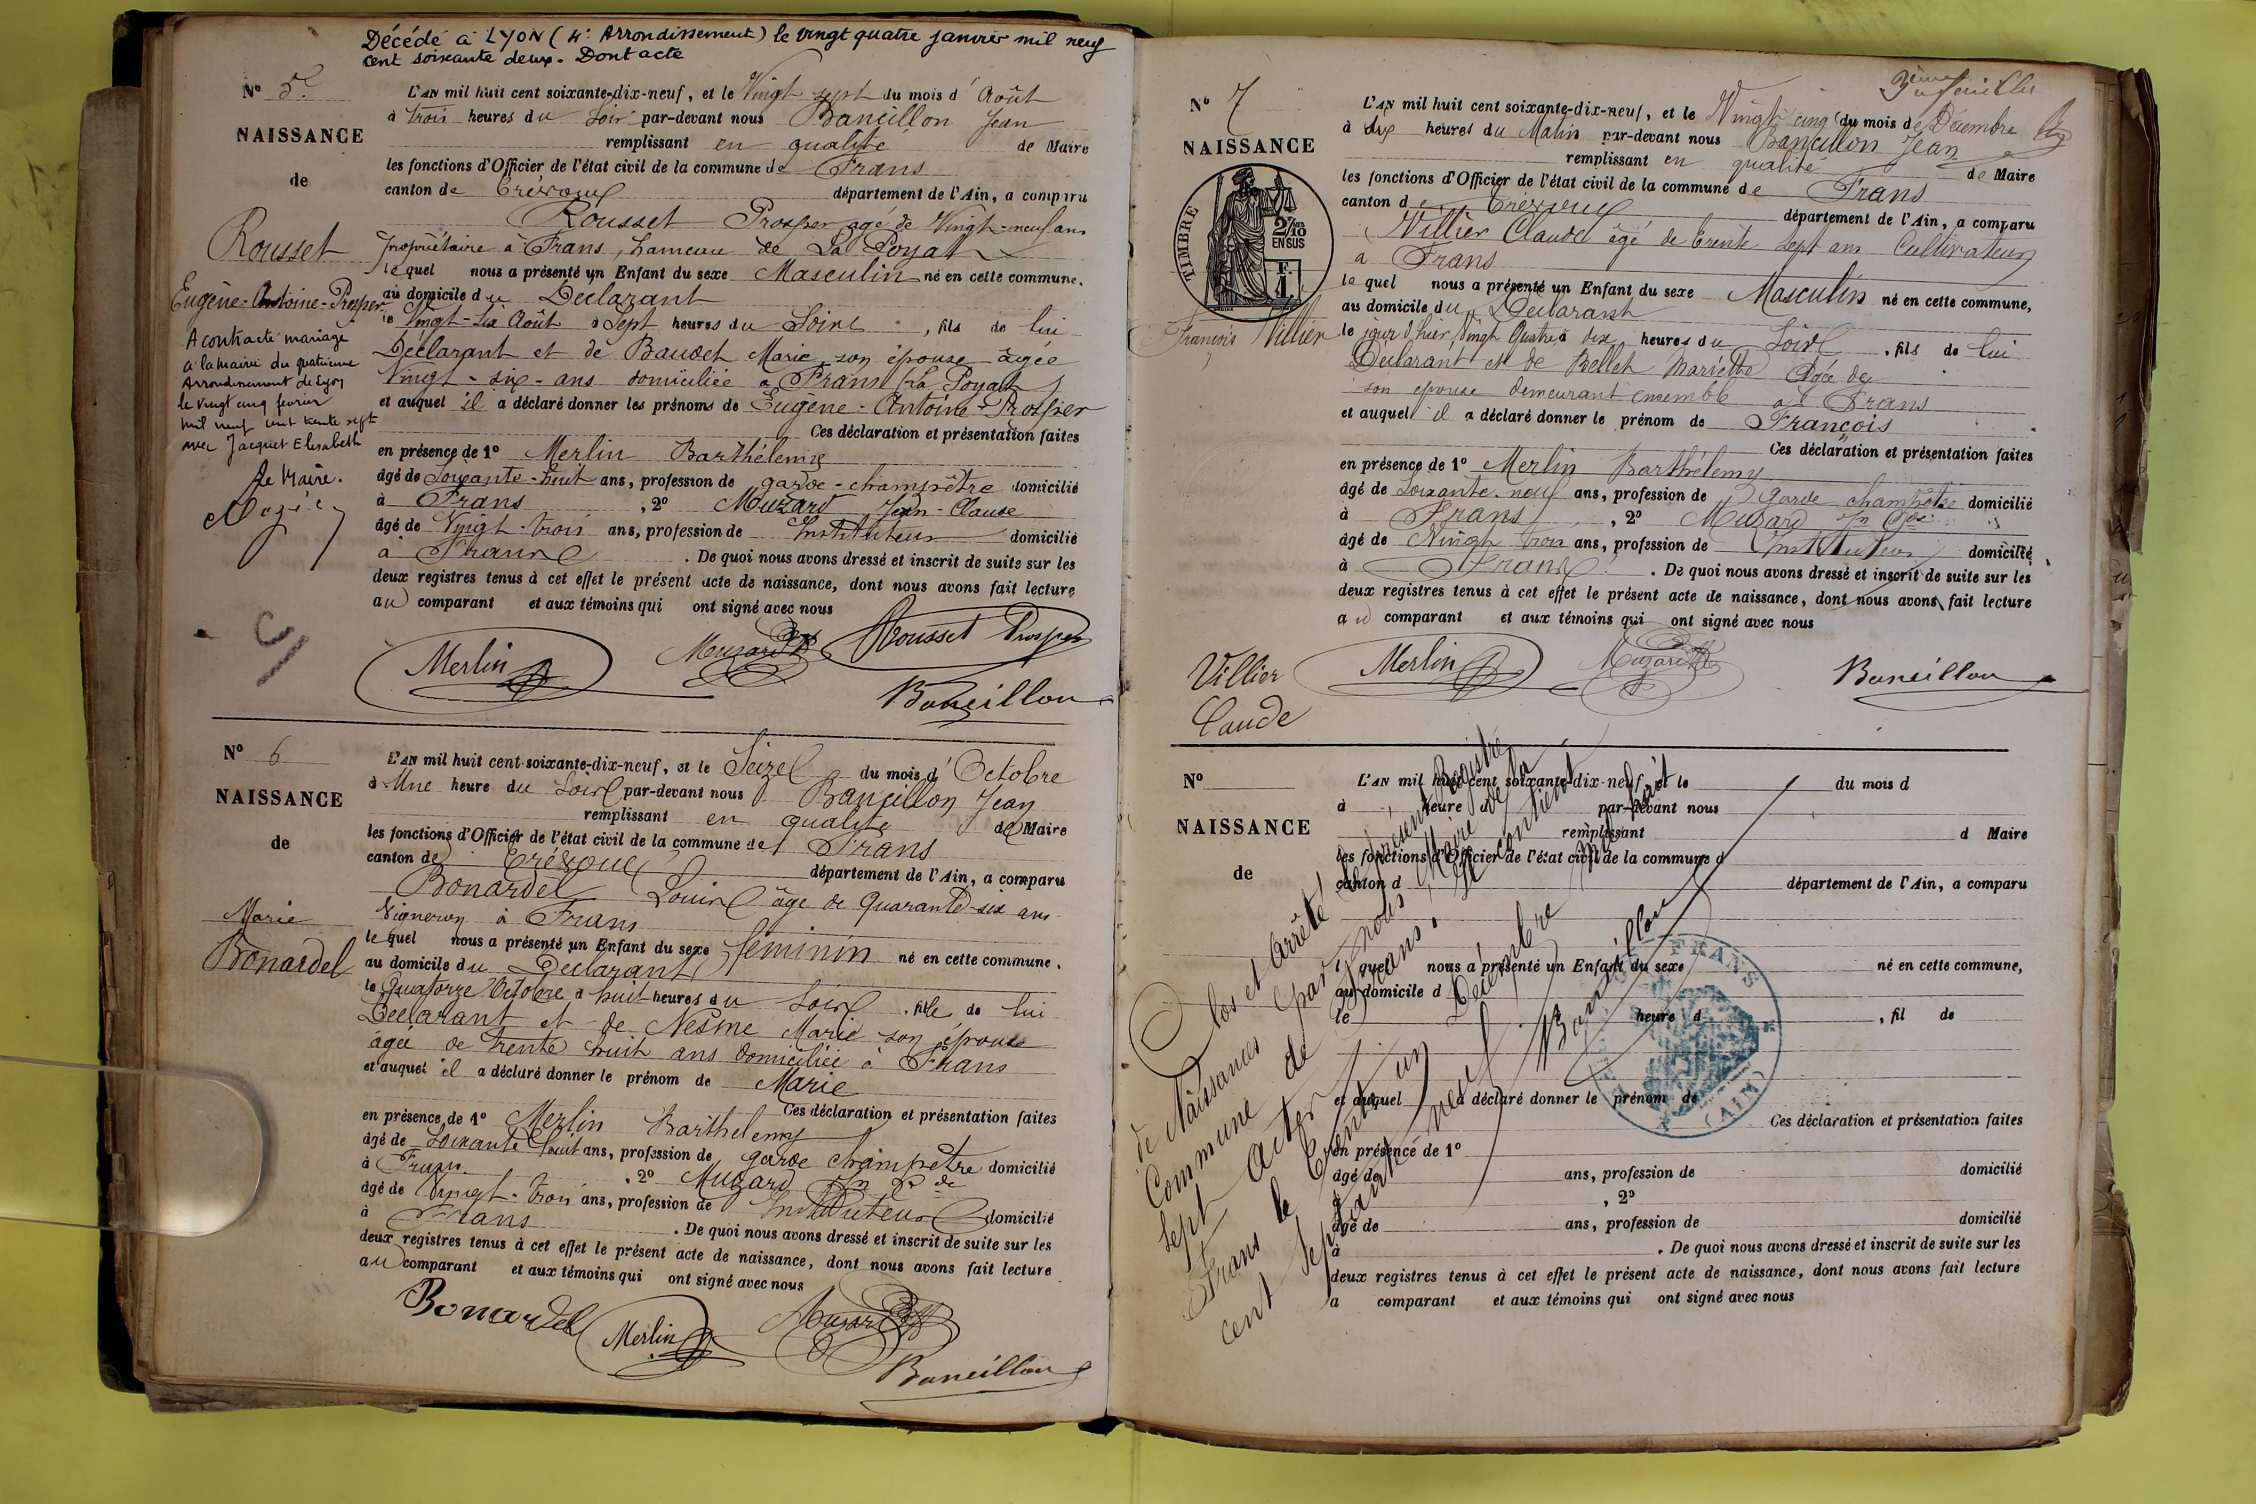 Décédé à LYON (4e Arrondissement) le vingt quatre janvier mil neuf
cent soixante deux. Dont acte
N° 5
NAISSANCE
de
Rousset
Eugène-Antoine-Prosper
A contracté mariage
à la mairie du quatrième
Arrondissement de Lyon
le vingt cinq février
mil neuf cent trente sept
avec Jacquet Elisabeth
Le Maire.
L'AN mil huit cent soixante-dix-neuf, et le Vingt sept du mois d'Août
à trois heures du Soir par-devant nous Bancillon Jean
remplissant en qualité de Maire
les fonctions d'Officier de l'état civil de la commune de Frans
canton de Trévoux département de l'Ain, a comparu
Rousset Prosper agé de Vingt-neuf ans
propriétaire à Frans, hameau de La Poyat
le quel nous a présenté un Enfant du sexe Masculin né en cette commune,
au domicile du Déclarant
le Vingt-six Août à Sept heures du Soir, fils de lui
Déclarant et de Baudet Marie son épouse agée
Vingt-six-ans domiciliée à Frans (La Poyat)
et auquel il a déclaré donner les prénoms de Eugène-Antoine-Prosper
Ces déclaration et présentation faites
en présence de 1° Merlin Barthélemy
âgé de Soixante-huit ans, profession de garde-champêtre domicilié
à Frans, 2° Muzard Jean-Claude
âgé de Vingt-trois ans, profession de Instituteur domicilié
à Frans. De quoi nous avons dressé et inscrit de suite sur les
deux registres tenus à cet effet le présent acte de naissance, dont nous avons fait lecture
au comparant et aux témoins qui ont signé avec nous
Merlin Muzard Rousset Prosper
Bancillon
N° 6
NAISSANCE
de
Marie
Bonardel
L'AN mil huit cent soixante-dix-neuf, et le Seize du mois d'Octobre
à Une heure du Soir par-devant nous Bancillon Jean
remplissant en qualité de Maire
les fonctions d'Officier de l'état civil de la commune de Frans
canton de Trévoux département de l'Ain, a comparu
Bonardel Louis âge de Quarante-six ans
Vigneron à Frans
le quel nous a présenté un Enfant du sexe féminin né en cette commune,
au domicile du Déclarant
le Quatorze Octobre à huit heures du Soir, fille de lui
Déclarant et de Nesme Marie son épouse
âgée de trente huit ans domiciliée à Frans
et auquel il a déclaré donner le prénom de Marie
Ces déclaration et présentation faites
en présence de 1° Merlin Barthélemy
âgé de Soixante huit ans, profession de garde champêtre domicilié
à Frans, 2° Muzard Jn Cde
âgé de Vingt-trois ans, profession de Instituteur domicilié
à Frans. De quoi nous avons dressé et inscrit de suite sur les
deux registres tenus à cet effet le présent acte de naissance, dont nous avons fait lecture
au comparant et aux témoins qui ont signé avec nous
Bonardel Merlin Muzard
Bancillon
3ème feuillet
N° 7
NAISSANCE
TIMBRE
2/10 EN SUS
F. 1
François Villier
L'AN mil huit cent soixante-dix-neuf, et le Vingt cinq du mois de Décembre
à dix heures du Matin par-devant nous Bancillon Jean
remplissant en qualité de Maire
les fonctions d'Officier de l'état civil de la commune de Frans
canton de Trévoux département de l'Ain, a comparu
Villier Claude âgé de trente sept ans Cultivateur
à Frans
le quel nous a présenté un Enfant du sexe Masculin né en cette commune,
au domicile du Déclarant
le jour d'hier, Vingt Quatre à dix heures du Soir, fils de lui
Déclarant et de Bellet Mariette Agée de
son épouse demeurant ensemble à Frans
et auquel il a déclaré donner le prénom de François
Ces déclaration et présentation faites
en présence de 1° Merlin Barthélemy
âgé de Soixante-neuf ans, profession de Garde champêtre domicilié
à Frans, 2° Muzard Jn Cde
âgé de Vingt trois ans, profession de Instituteur domicilié
à Frans. De quoi nous avons dressé et inscrit de suite sur les
deux registres tenus à cet effet le présent acte de naissance, dont nous avons fait lecture
au comparant et aux témoins qui ont signé avec nous
Villier Merlin Muzard Bancillon
Claude
N°
NAISSANCE
de
L'AN mil huit cent soixante-dix-neuf, et le du mois d
à heure d par-devant nous
remplissant d Maire
les fonctions d'Officier de l'état civil de la commune d
canton d département de l'Ain, a comparu
l quel nous a présenté un Enfant du sexe né en cette commune,
au domicile d
le heure d, fil de
et auquel a déclaré donner le prénom de
Ces déclaration et présentation faites
en présence de 1°
âgé de ans, profession de domicilié
à, 2°
âgé de ans, profession de domicilié
à. De quoi nous avons dressé et inscrit de suite sur les
deux registres tenus à cet effet le présent acte de naissance, dont nous avons fait lecture
a comparant et aux témoins qui ont signé avec nous
Clos et arrêté le présent Registre
de Naissances par nous Maire de la
Commune de Frans, il contient
sept actes
Frans le trente un Décembre mil huit
cent septante neuf
Bancillon
FRANS
(AIN)